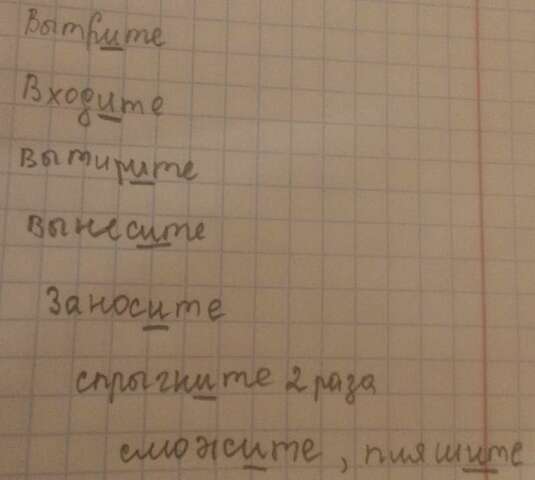 Вытрите
Входите
Вытирите
Вынесите
Заносите
спрыгните 2 раза
сможите, пляшите